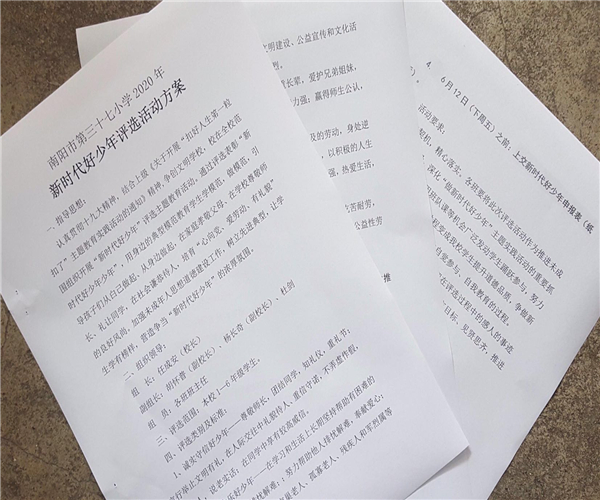 南阳市第三十七小学 2020 年
新时代好少年评选活动方案
一、指导思想:
认真贯彻十九大精神,结合上级《关于开展“扣好人生第一粒
扣子”主题教育实践活动的通知》精神,争创文明学校,校在全校范
围组织开展“新时代好少年”评选主题教育活动,通过评选表彰“新
时代好少年”,用身边的典型模范教育学生学模范,做模范,引
导孩子们从自己做起,从身边做起,在家庭孝敬父母,在学校尊敬师
长、礼让同学,在社会谦恭待人,培育“心向党、爱劳动、有礼貌”
的良好风尚,加强未成年人思想道德建设工作,树立先进典型,让学
生学有榜样,营造争当“新时代好少年”的浓厚氛围。
二、组织领导:
组 长:任成安(校长)
副组长:胡怀春(副校长)、杨长奇(副校长)、杜剑
组 员:各班班主任
三、评选范围:本校1-6年级学生。
四、评选类别及标准:
1、诚实守信好少年——尊敬师长,团结同学,知礼仪,重礼节;
言行举止文明有礼,在人际交往中礼貌待人、重信守诺;不弄虚作假,
说老实话,在同学中享有较高威信。
好少年——在学习和生活上长期坚持帮助有困难的
忧解难;努力帮助他人排忧解难,奉献爱心;
老人、孤寡老人、残疾人和军烈属等
文明建设、公益宣传和文化活
长辈,爱护兄弟姐妹,
力强;赢得师生公认,
及的劳动,身处逆
,以积极的人生
强,热爱生活,
吃苦耐劳,
公益性劳
推
4、6月12日(下周五)之前,上交新时代好少年申报表(纸
活动要求:
精心落实。各班要将此次评选活动作为推进未成
深化“做新时代好少年”主题实践活动的重要抓
班队课等机会广泛发动学生踊跃参与,努力
程变成我校学生提升道德品质、争做新
自觉参与、自我教育的过程。
在评选过程中的感人的事迹
目标,见贤思齐,推进